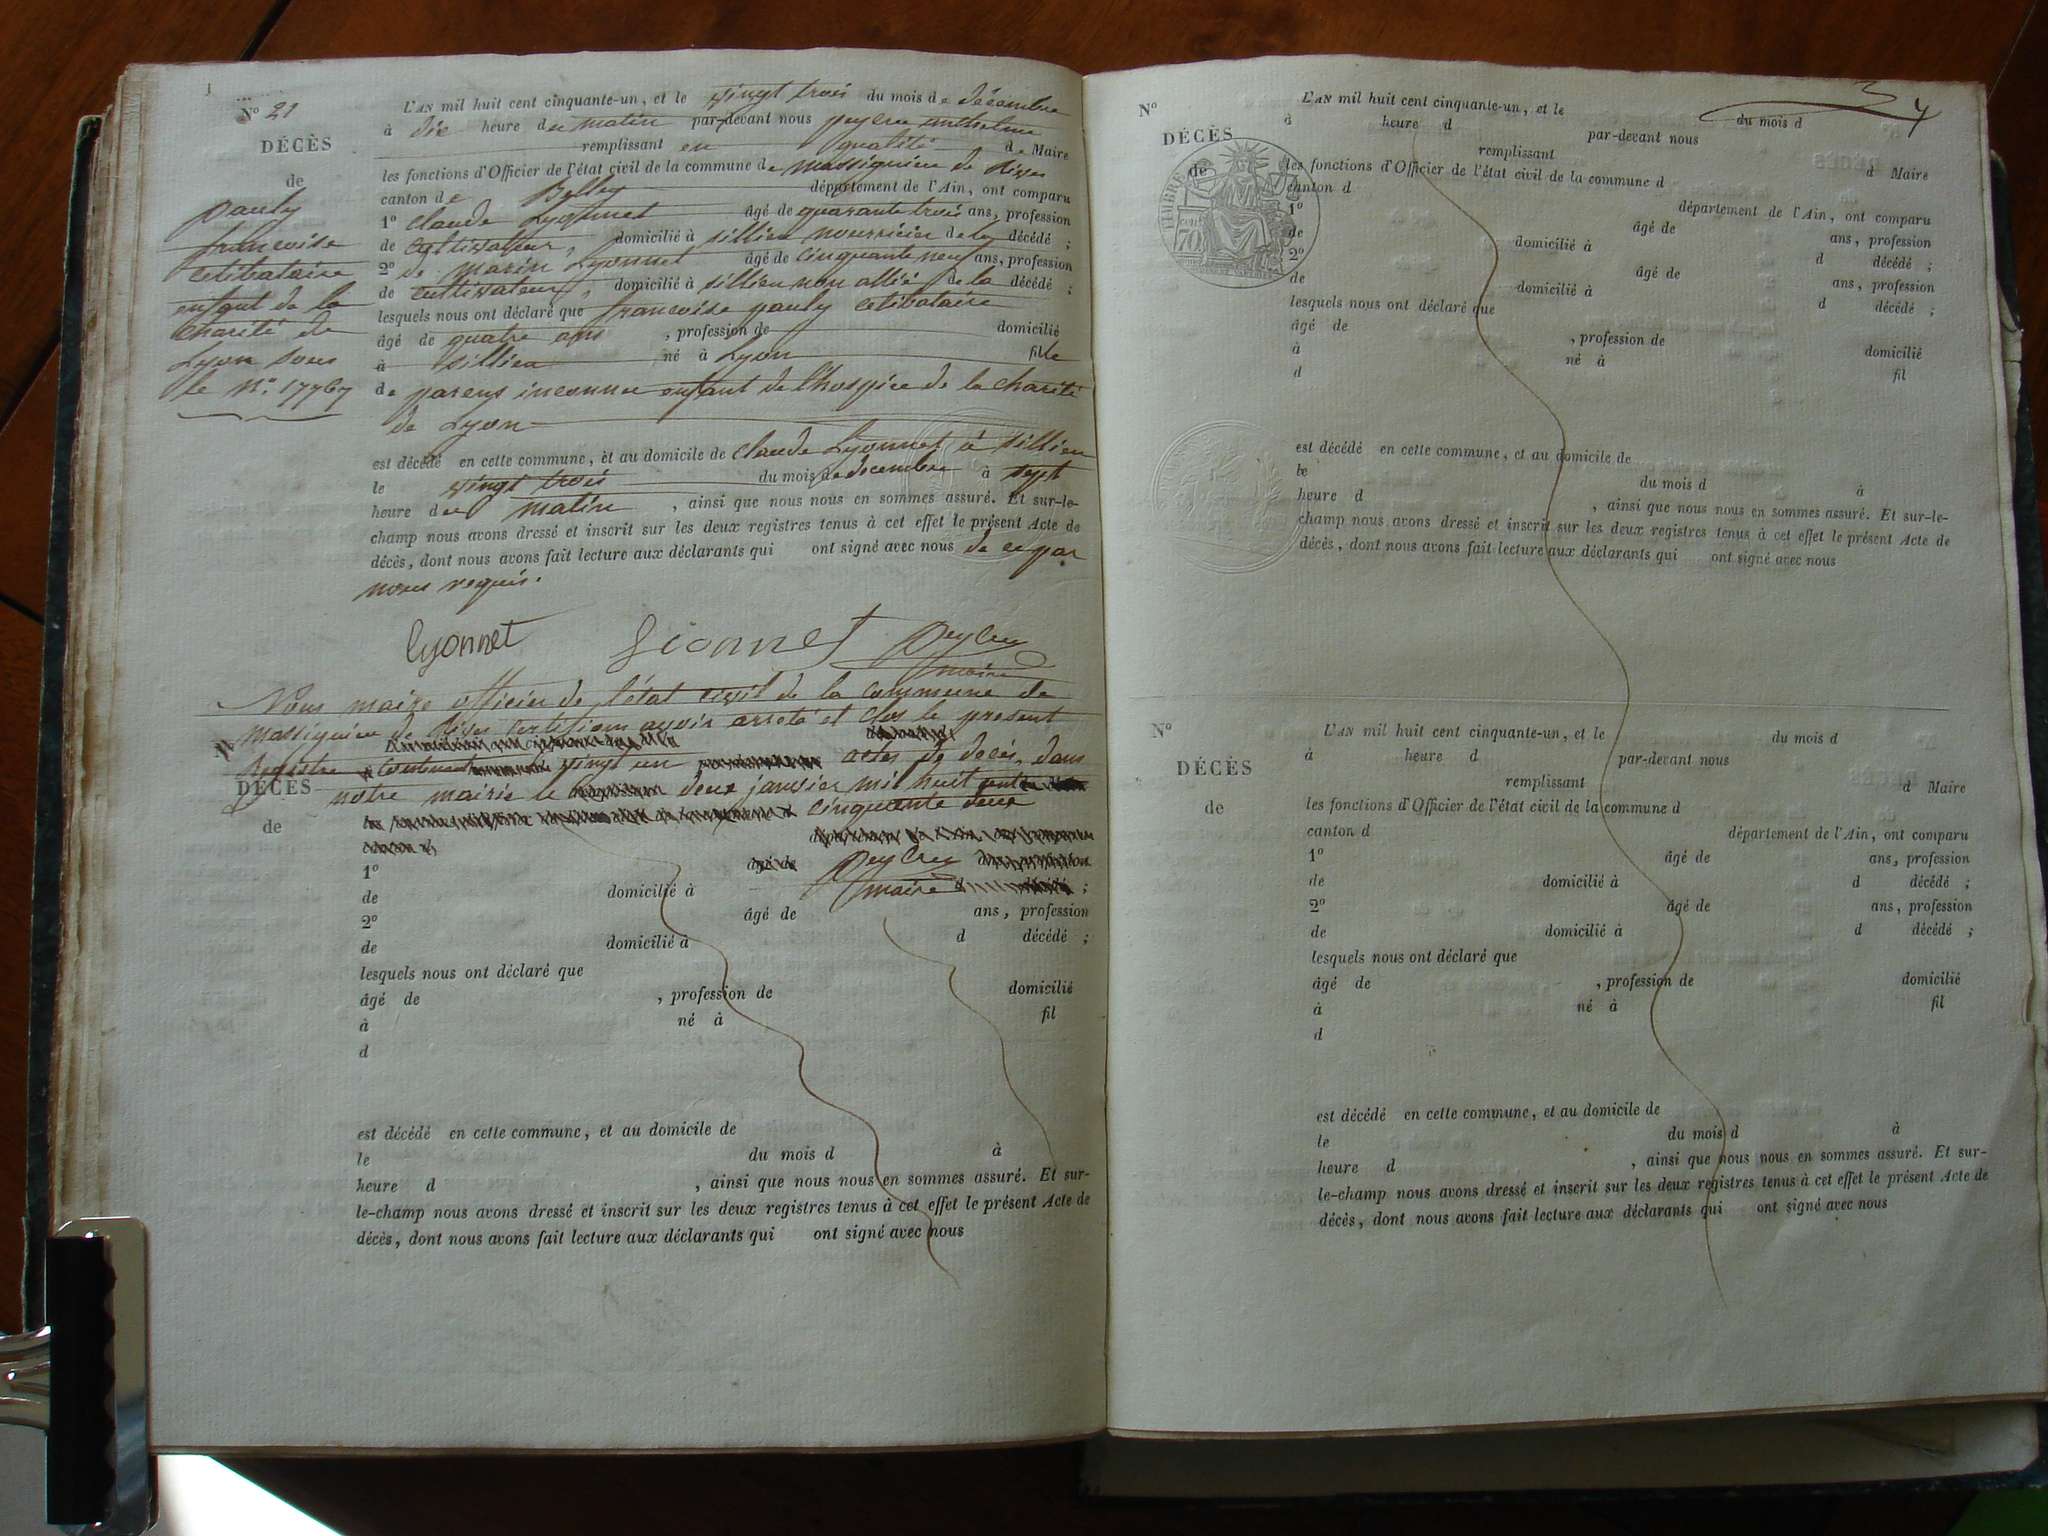 1
N° 21
DÉCÈS
de
pauly
francoise
celibataire
enfant de la
charité de
Lyon sous
le N° 17767
L'AN mil huit cent cinquante-un, et le vingt trois du mois de décembre
à dix heure du matin par-devant nous peycru anthelme
remplissant en qualité de Maire
les fonctions d'Officier de l'état civil de la commune de massignieu de Rives
canton de Belley département de l'Ain, ont comparu
1° Claude Lyonnet âgé de quarante trois ans, profession
de cultivateur, domicilié à sillieu nourricier de la décédé ;
2° de marin Lyonnet âgé de cinquante neuf ans, profession
de cultivateur, domicilié à sillieu non allié de la décédé ;
lesquels nous ont déclaré que francoise pauly celibataire
âgé de quatre ans , profession de domicilié
à sillieu né à Lyon fille
de parens inconnu enfant de l'hospice de la charité
de Lyon
est décédé en cette commune, et au domicile de Claude Lyonnet à sillieu
le vingt trois du mois de decembre à sept
heure du matin , ainsi que nous nous en sommes assuré. Et sur-le-
champ nous avons dressé et inscrit sur les deux registres tenus à cet effet le présent Acte de
décès, dont nous avons fait lecture aux déclarants qui ont signé avec nous de ce par
nous requis.
lyonnet Lionnet Peycru
maire
Nous maire officier de l'état civil de la commune de
massignieu de Rives certifions avoir arreté et clos le present
Registre contenant vingt un actes de décés, dans
notre mairie le deux janvier mil huit cent
cinquante deux
Peycru
maire
DÉCÈS
de
1° âgé de
de domicilié à
2° âgé de ans, profession
de domicilié à d décédé ;
lesquels nous ont déclaré que
âgé de , profession de domicilié
à né à fil
d
est décédé en cette commune, et au domicile de
le du mois d à
heure d , ainsi que nous nous en sommes assuré. Et sur-
le-champ nous avons dressé et inscrit sur les deux registres tenus à cet effet le présent Acte de
décès, dont nous avons fait lecture aux déclarants qui ont signé avec nous
N°
DÉCÈS
de
TIMBRE
70
L'AN mil huit cent cinquante-un, et le du mois d
à heure d par-devant nous
remplissant d Maire
les fonctions d'Officier de l'état civil de la commune d
canton d département de l'Ain, ont comparu
1° âgé de ans, profession
de domicilié à d décédé ;
2° âgé de ans, profession
de domicilié à d décédé ;
lesquels nous ont déclaré que
âgé de , profession de domicilié
à né à fil
d
est décédé en cette commune, et au domicile de
le du mois d à
heure d , ainsi que nous nous en sommes assuré. Et sur-le-
champ nous avons dressé et inscrit sur les deux registres tenus à cet effet le présent Acte de
décès, dont nous avons fait lecture aux déclarants qui ont signé avec nous
N°
DÉCÈS
de
L'AN mil huit cent cinquante-un, et le du mois d
à heure d par-devant nous
remplissant d Maire
les fonctions d'Officier de l'état civil de la commune d
canton d département de l'Ain, ont comparu
1° âgé de ans, profession
de domicilié à d décédé ;
2° âgé de ans, profession
de domicilié à d décédé ;
lesquels nous ont déclaré que
âgé de , profession de domicilié
à né à fil
d
est décédé en cette commune, et au domicile de
le du mois d à
heure d , ainsi que nous nous en sommes assuré. Et sur-
le-champ nous avons dressé et inscrit sur les deux registres tenus à cet effet le présent Acte de
décès, dont nous avons fait lecture aux déclarants qui ont signé avec nous